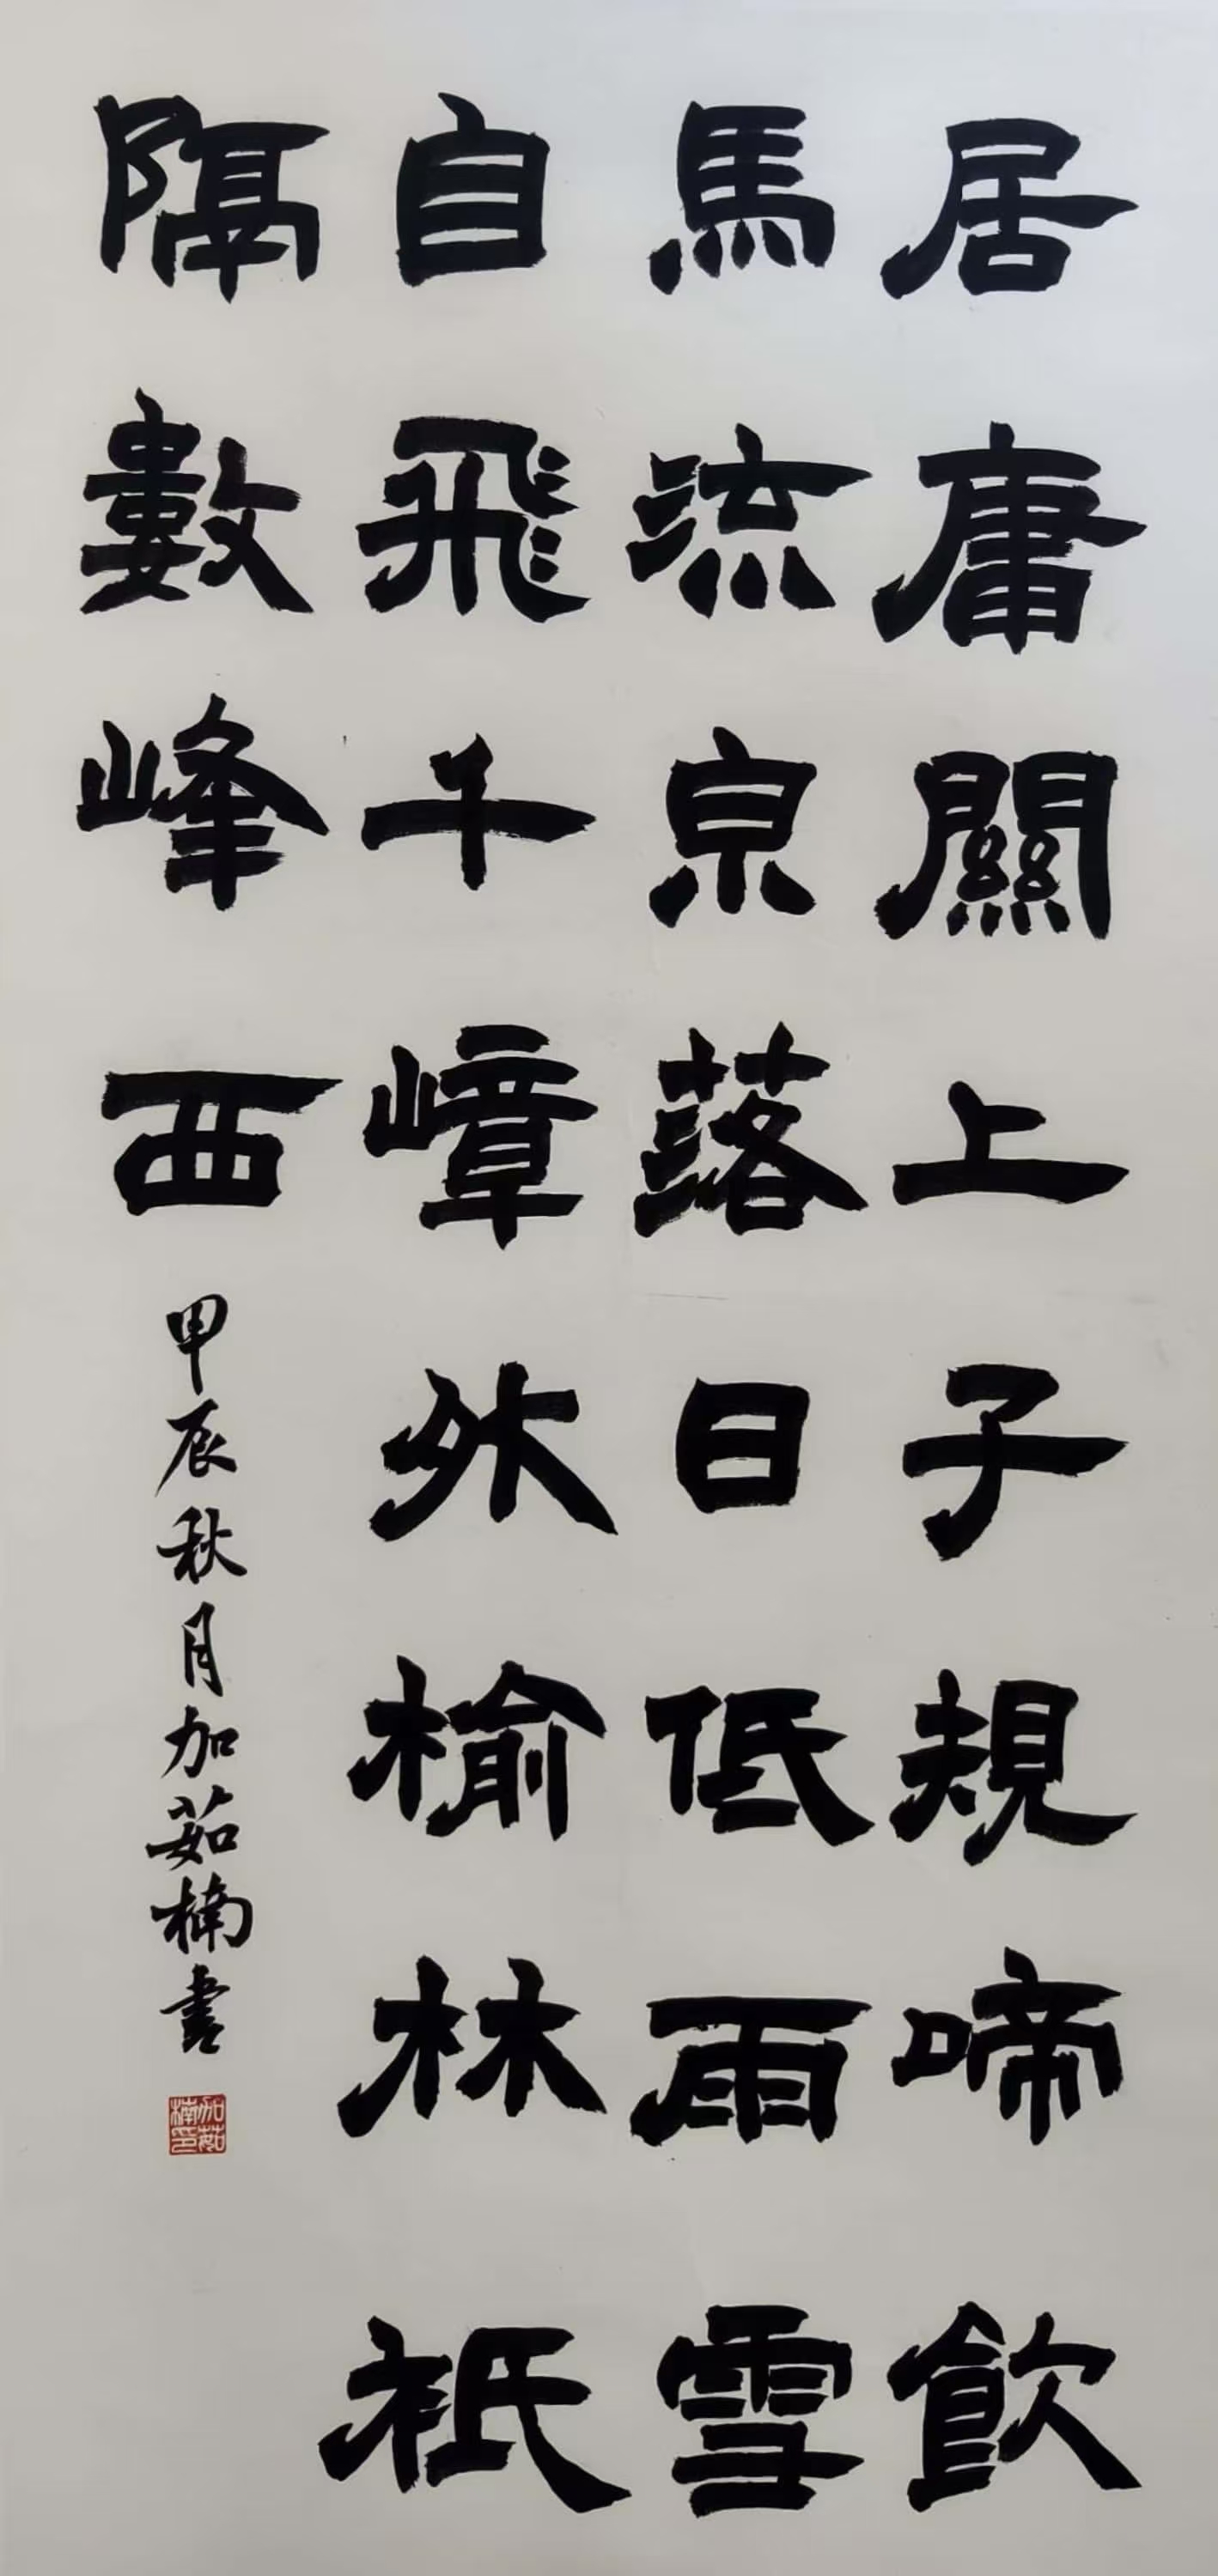 居庸關上子規啼飲
馬流泉落日低雨雪
自飛千嶂外榆林祇
隔數峰西
甲辰秋月加茹楠書
加茹楠印